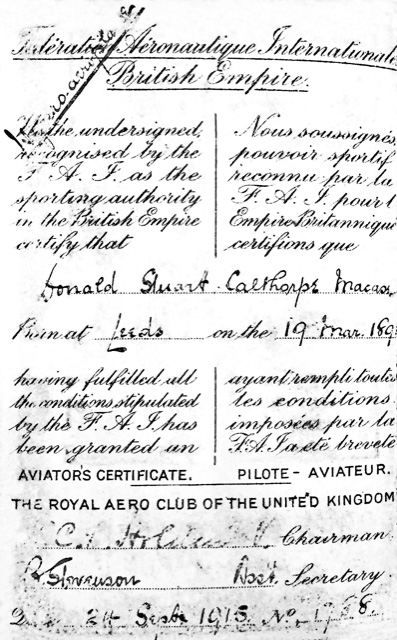 Fédération Aéronautique Internationale
British Empire.
We the undersigned, recognised by the F. A. I. as the sporting authority in the British Empire certify that
Nous soussignés pouvoir sportif reconnu par la F. A. I. pour l Empire Britannique certifions que
Donald Stuart Calthorpe
Born at Leeds on the 19 Mar. 189
having fulfilled all the conditions stipulated by the F. A. I. has been granted an
ayant rempli toutes les conditions imposées par la F. A. I. a été breveté
AVIATOR'S CERTIFICATE. PILOTE-AVIATEUR.
THE ROYAL AERO CLUB OF THE UNITED KINGDOM
Chairman.
Stevenson Asst. Secretary.
24 Septr 1915 No.